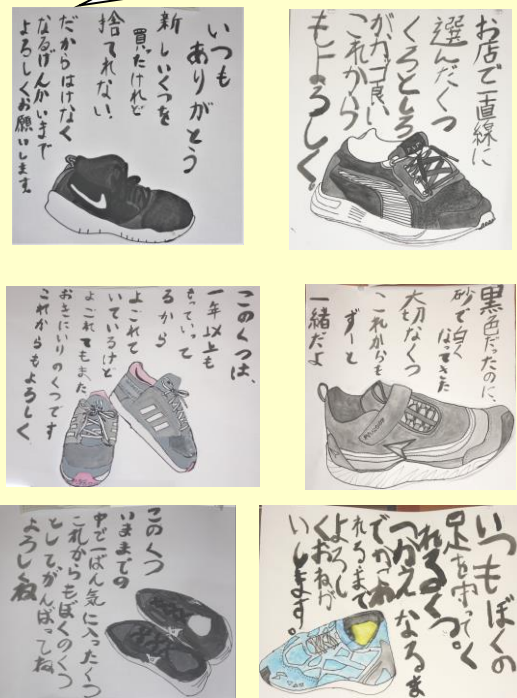 いつも
ありがとう
新しいくつを
買たけれど
捨てれない.
だからはけなく
なるげんかいまで
よろしくお願いします。
お店で一直線に
選んだくつ
くろとしろ
がカッコ良い
これから
もよろしく。
このくつは、
一年以上も
もっていって
るから
よごれて
いているけど
よごれてもまた、
おきにいりのくつです
これからもよろしく
黒色だったのに、
砂で白く
なってきた
大切なくつ
これからも
ずーと
一緒だよ
このくつ
いままでの
中で一ばん気に入ったくつ
これからもぼくのくつ
としてがんばってね
よろしくね
いつもぼくの
足を守ってく
れるくつ。
つかえなるま
れるまで
よろし
くおねが
いします。